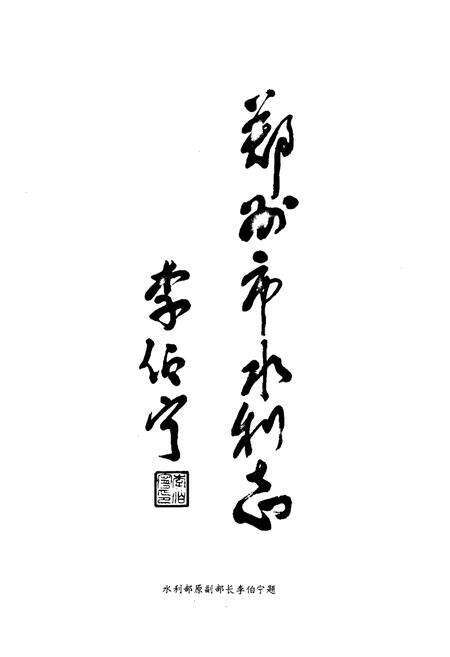 郑州市水利志
李伯宁
水利部原副部长李伯宁题